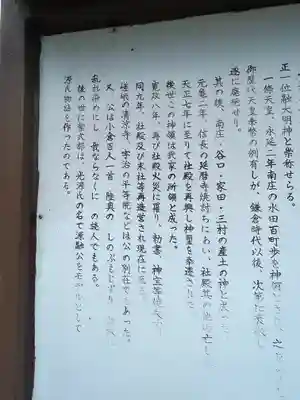 正一位融大明神と崇称せらる。
一條天皇、永延二年南庄の水田百町歩を神領と
御歴代天皇奉幣の例有しが、鎌倉時代以後、次第に
遂に廃絶せり。
其の後、南庄・谷口・家田・三村の産土の神と
元亀二年、信長の延暦寺焼討ちにあい、社殿其の他
天正七年に至りて社殿を再興し神璽を奉遷された
後世この神領は武家の所領と成った。
寛政八年、再び社殿火災に罹り、勅書、神宝等
同九年、社殿及び末社等再造営され現在に至る
嵯峨の清凉寺、宇治の平等院などは公の別荘でもあった。
又、公は小倉百人一首 陸奥の しのぶもじずり
乱れ染めにし 我ならなくに の詠人でもある。
後の世に紫式部は、光源氏の名で源融公をモデルとして
源氏物語を作ったのである。